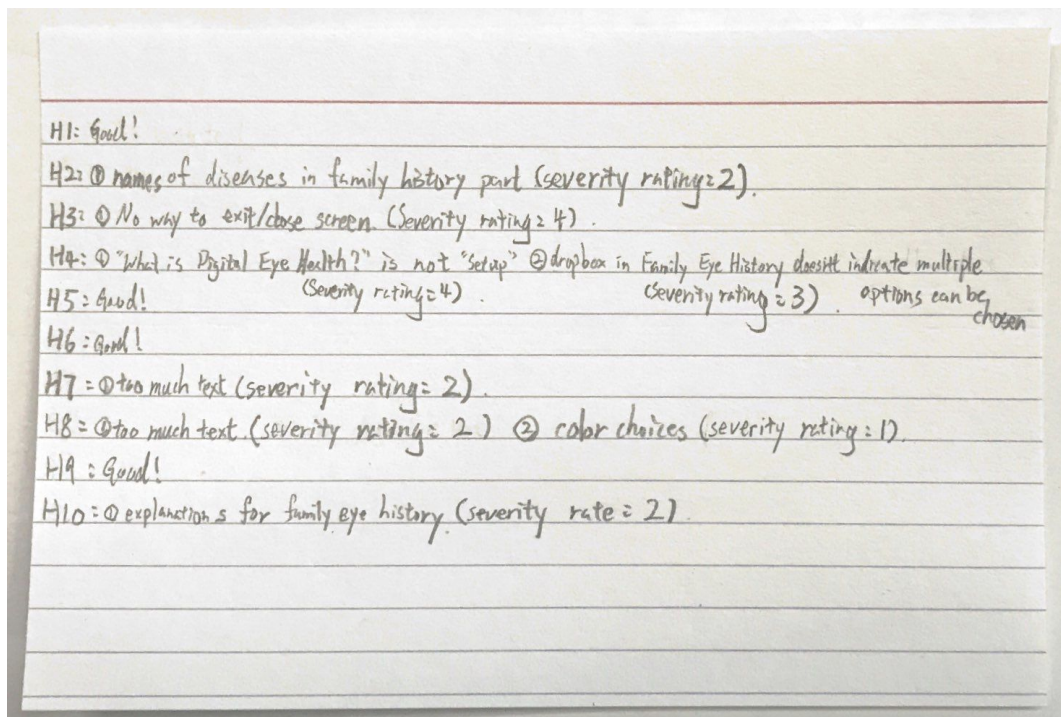 H1: Good!
H2: ① names of diseases in family history part (severity rating=2).
H3: ① No way to exit/close screen. (Severity rating=4).
H4: ① "What is Digital Eye Health?" is not "setup" ② dropbox in Family Eye History doesn't indicate multiple
(Severity rating=4). (Severity rating=3). options can be
H5: Good! chosen
H6: Good!
H7: ① too much text (severity rating=2).
H8: ① too much text. (severity rating=2) ② color choices (severity rating=1).
H9: Good!
H10: ① explanations for family eye history. (severity rate=2).